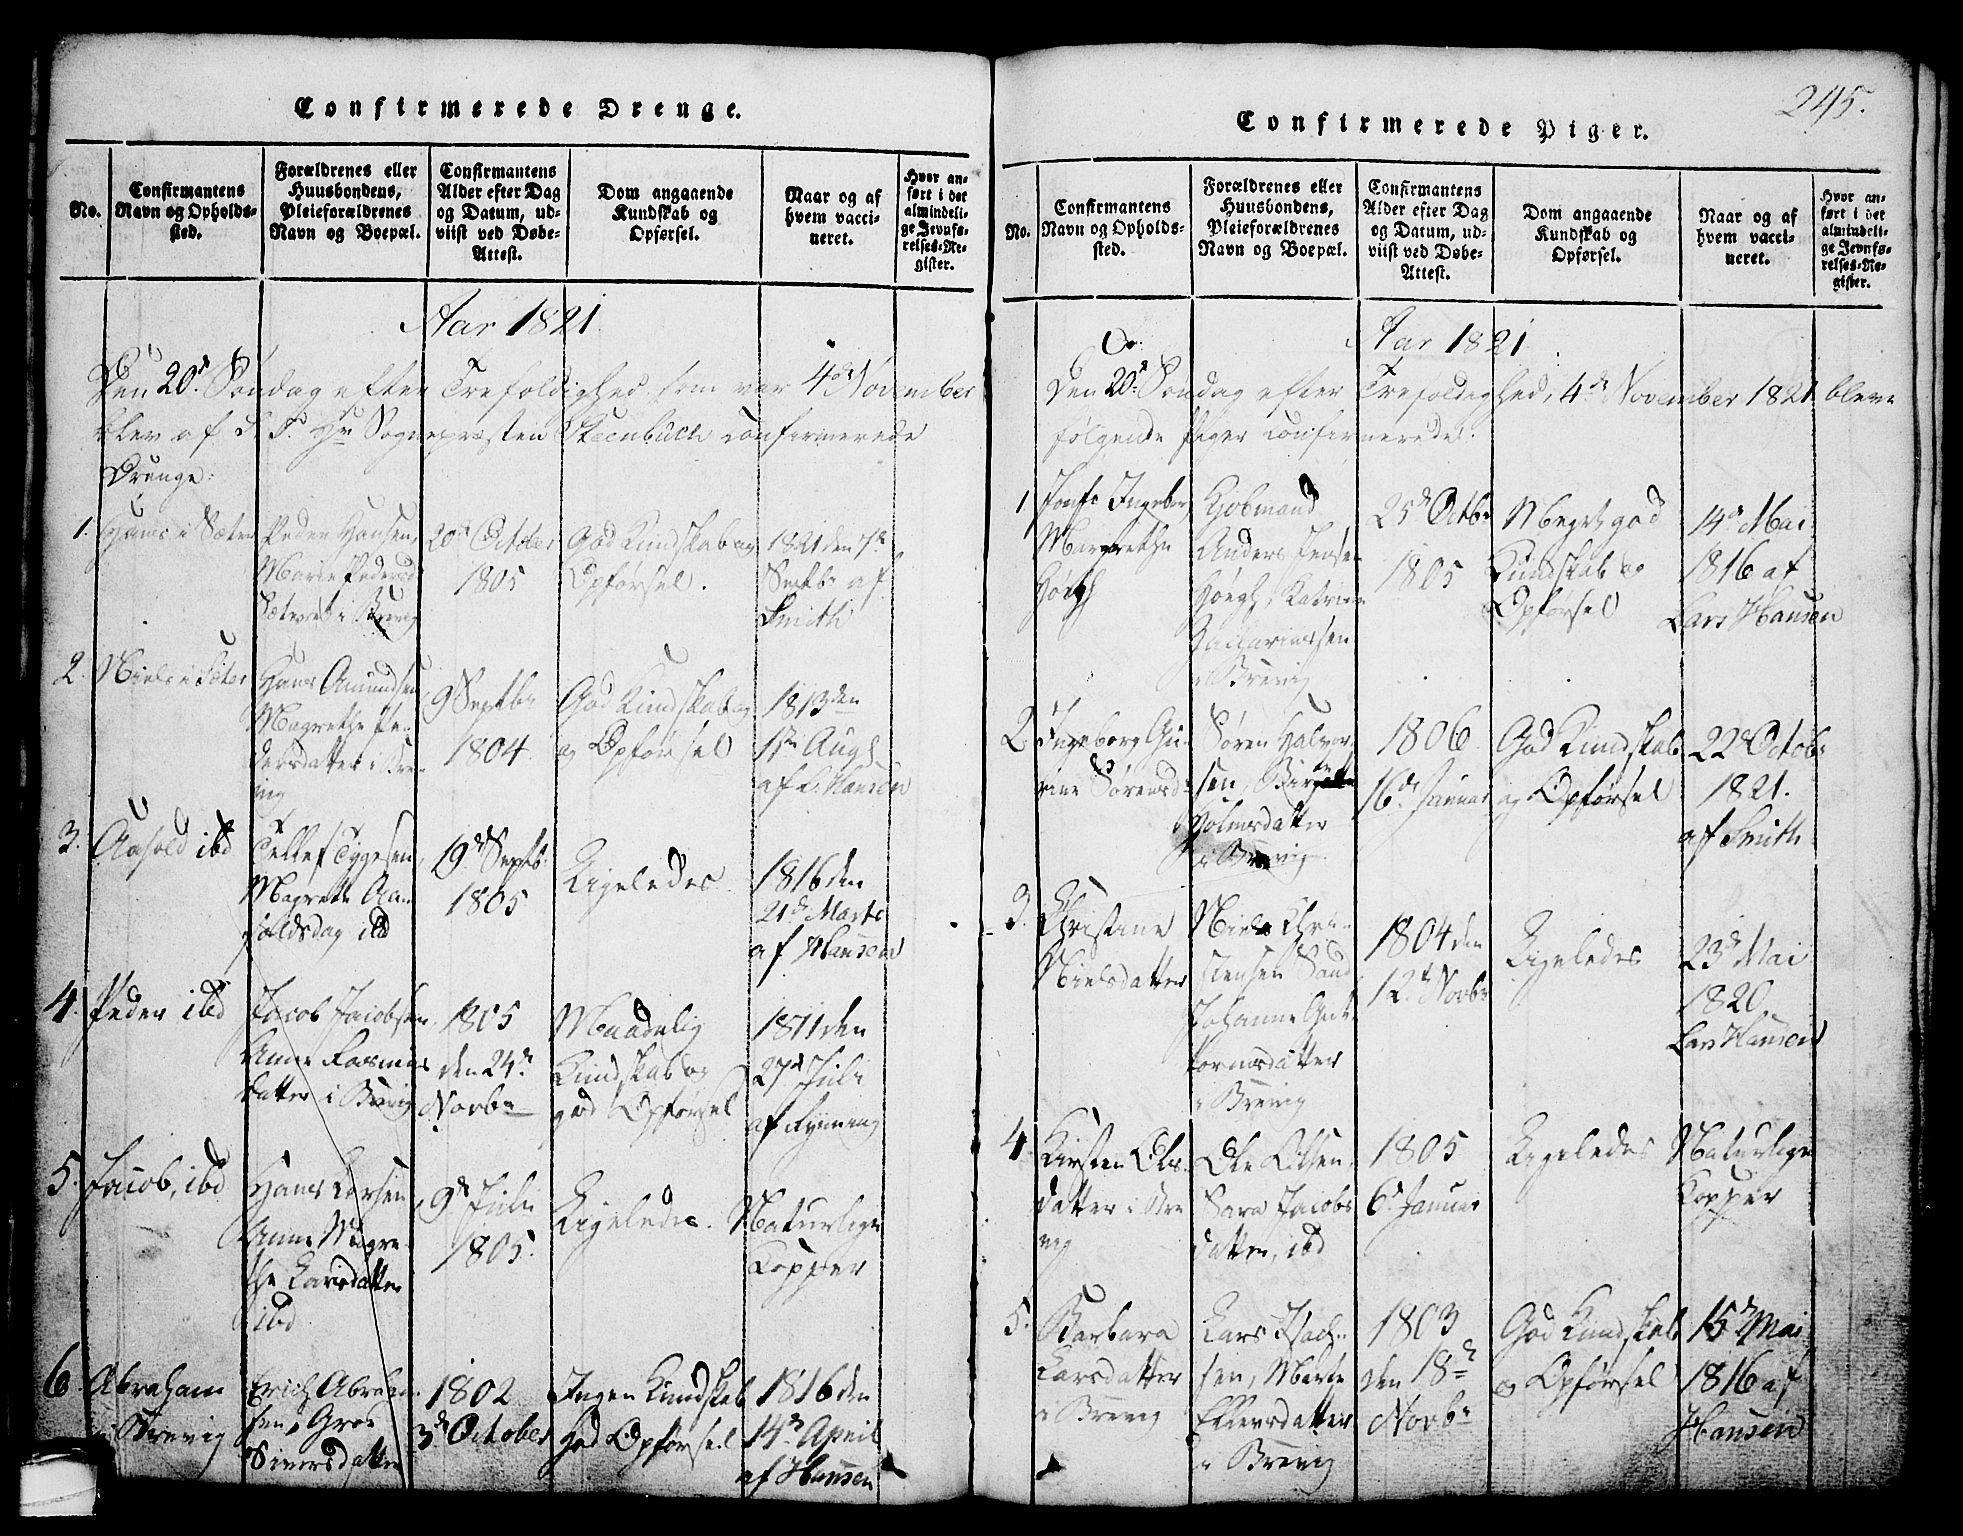 Confirmerede Drenge.
No.
Confirmantens
Navn og Opholds-
sted.
Forældrenes eller
Huusbondens,
Pleieforældrenes
Navn og Boepæl.
Confirmantens
Alder efter Dag
og Datum, ud-
viist ved Døbe-
Attest.
Dom angaaende
Kundskab og
Opførsel.
Naar og af
hvem vacci-
neret.
Hvor an-
ført i det
almindeli-
ge Jevnfø-
relses-Re-
gister.
Aar 1821
Den 20de Søndag efter Trefoldighed som var 4de November
blev af Hr Sognepræsten Steenbuch confirmerede
Drenge:
1.
Hans i Sæter
Peder Hansen,
Marie Peders
i Brevig
20de October
1805
God Kundskab og
Opførsel.
1821 den 7de
Septbr af
Smith
2.
Niels i Sæter
Hans Amundsen
Magrethe Pe-
dersdatter i Bre-
vig
9 Septbr
1804
God Kundskab og
og Opførsel
1813 den
17de Aug
af L. Hansen
3.
ibd
Tellef Tygesen,
Magrete
ibd
19de Septb.
1805
Ligeledes.
1816 den
21de Marts
af Hansen
4.
Peder ibd
Jacob Jacobsen
Anne Rasmus
datter i Brevig
1805
den 24de
Novbr
Maadelig
Kundskab og
god Opførsel
1811 den
27de Juli
af Rynning
5.
Jacob, ibd
Hans Larsen
Anne Magre-
the Larsdatter
ibd
9de Juli
1805.
Ligeledes.
Naturlige
Kopper
6.
Abraham
i Brevig
Erich Abraham-
sen, Groe
Siversdatter
1802
3de October
Ingen Kundskab
god Opførsel
1816 den
14de April
af Hansen
245.
Confirmerede Piger.
No.
Confirmantens
Navn og Opholds-
sted.
Forældrenes eller
Huusbondens,
Pleieforældrenes
Navn og Boepæl.
Confirmantens
Alder efter Dag
og Datum, ud-
viist ved Døbe-
Attest.
Dom angaaende
Kundskab og
Opførsel.
Naar og af
hvem vacci-
neret.
Hvor an-
ført i det
almindeli-
ge Jevnfø-
relses-Re-
gister.
Aar 1821
Den 20de Søndag efter Trefoldighed, 4de November 1821 bleve
følgende Piger confirmerede:
1
Jomfr Ingeborg
Margrethe
Høegh
Kjøbmand
Anders Jensen
Høegh, Katrine
Zachariassen
i Brevig
25de Octbr
1805
Meget god
Kundskab og
Opførsel
14de Mai
1816 af
Lars Hansen
2
Ingeborg Gu-
rine Sørensd.
Søren Halvor-
sen, Birgitte
Holmsdatter
i Brevig
1806
16de Januar
God Kundskab
og Opførsel
22de Octob:
1821.
af Smith
3.
Christine
Nielsdatter
Niels Chri-
stensen Sand
Johanne Gut-
tormsdatter
i Brevig
1804 den
12te Novbr
Ligeledes
23de Mai
1820
Lars Hansen
4
Kirsten Ols-
datter i Bre
vig
Ole Olsen,
Sara Jacobs
datter, ibd
1805
6te Januar
Ligeledes
Naturlige
Kopper
5.
Barbara
Larsdatter
i Brevig
Lars Isach-
sen, Marte
Ellevsdatter
i Brevig
1803
den 18de
Novbr
God Kundskab
og Opførsel
15de Mai
1816 af
Hansen